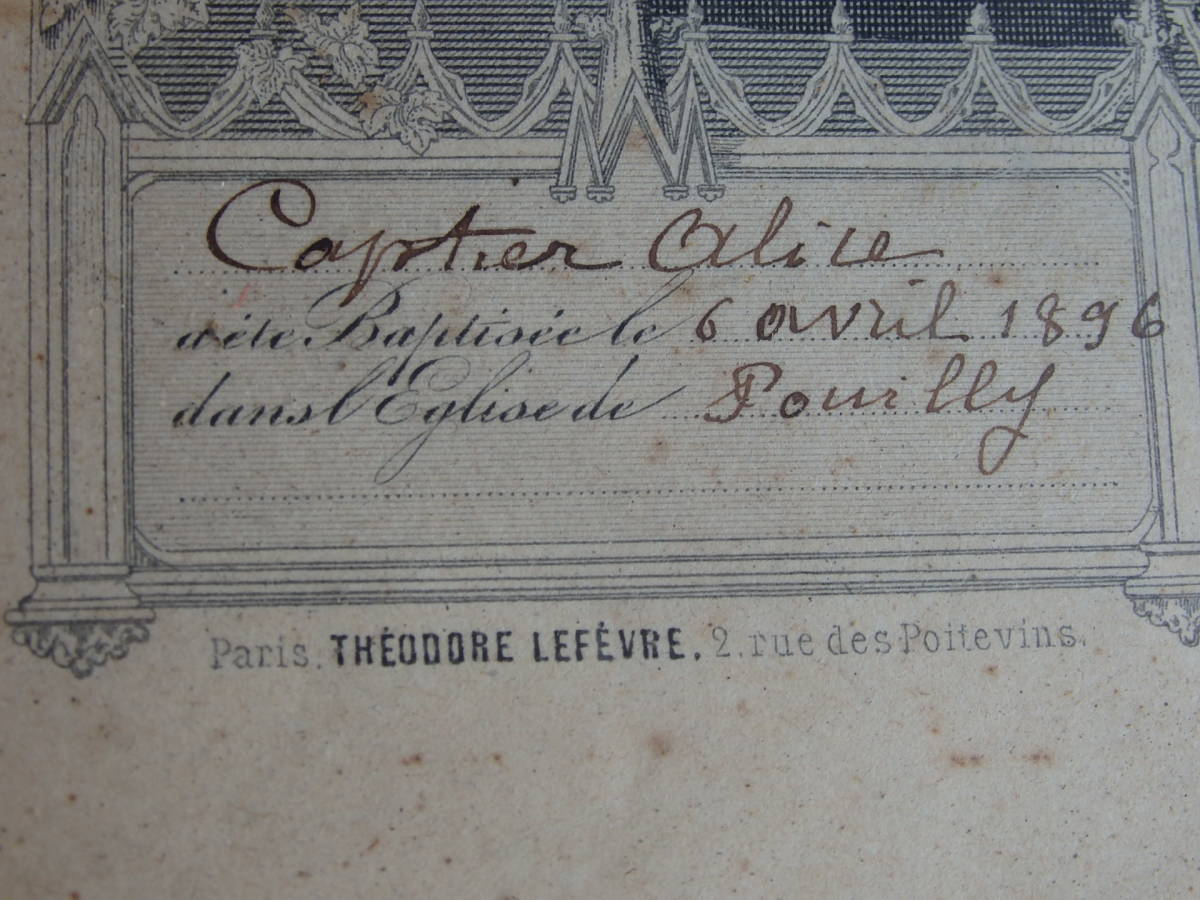 Captier Alice
a été Baptisée le 6 avril 1896
dans l'Eglise de Pouilly
Paris, THÉODORE LEFÉVRE, 2, rue des Poitevins.